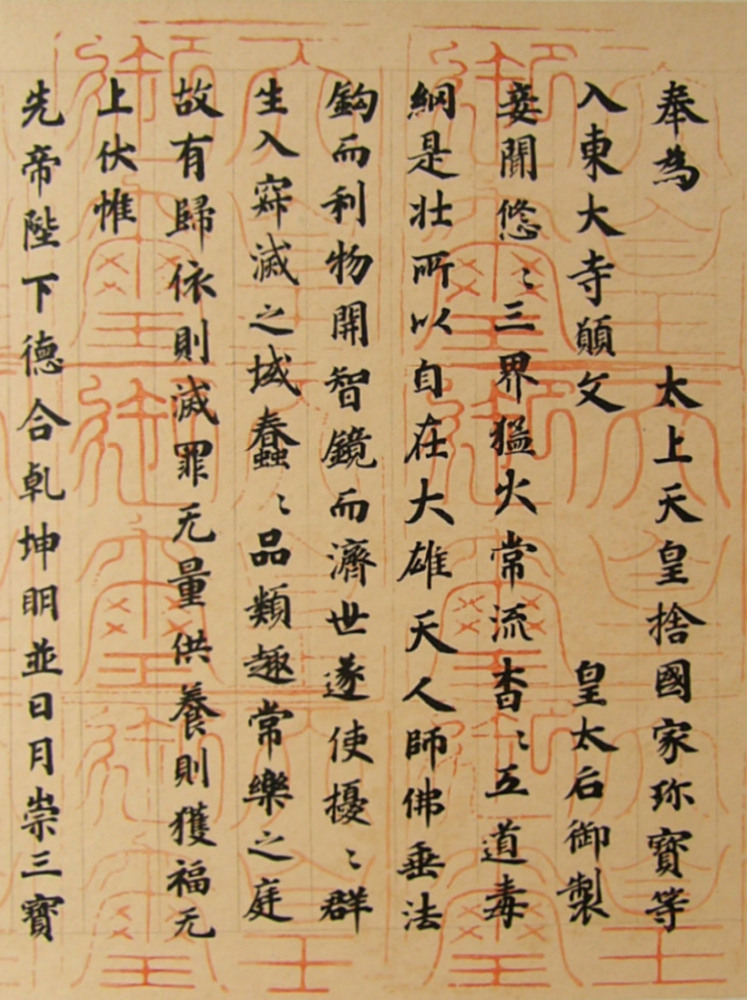 奉為 太上天皇捨國家珎寶等
入東大寺願文 皇太后御製
妾聞悠〻三界猛火常流杳〻五道毒
網是壮所以自在大雄天人師佛垂法
鈎而利物開智鏡而濟世遂使擾〻群
生入寂滅之域蠢〻品類趣常樂之庭
故有歸依則滅罪无量供養則獲福无
上伏惟
先帝陛下德合乹坤明並日月崇三寶